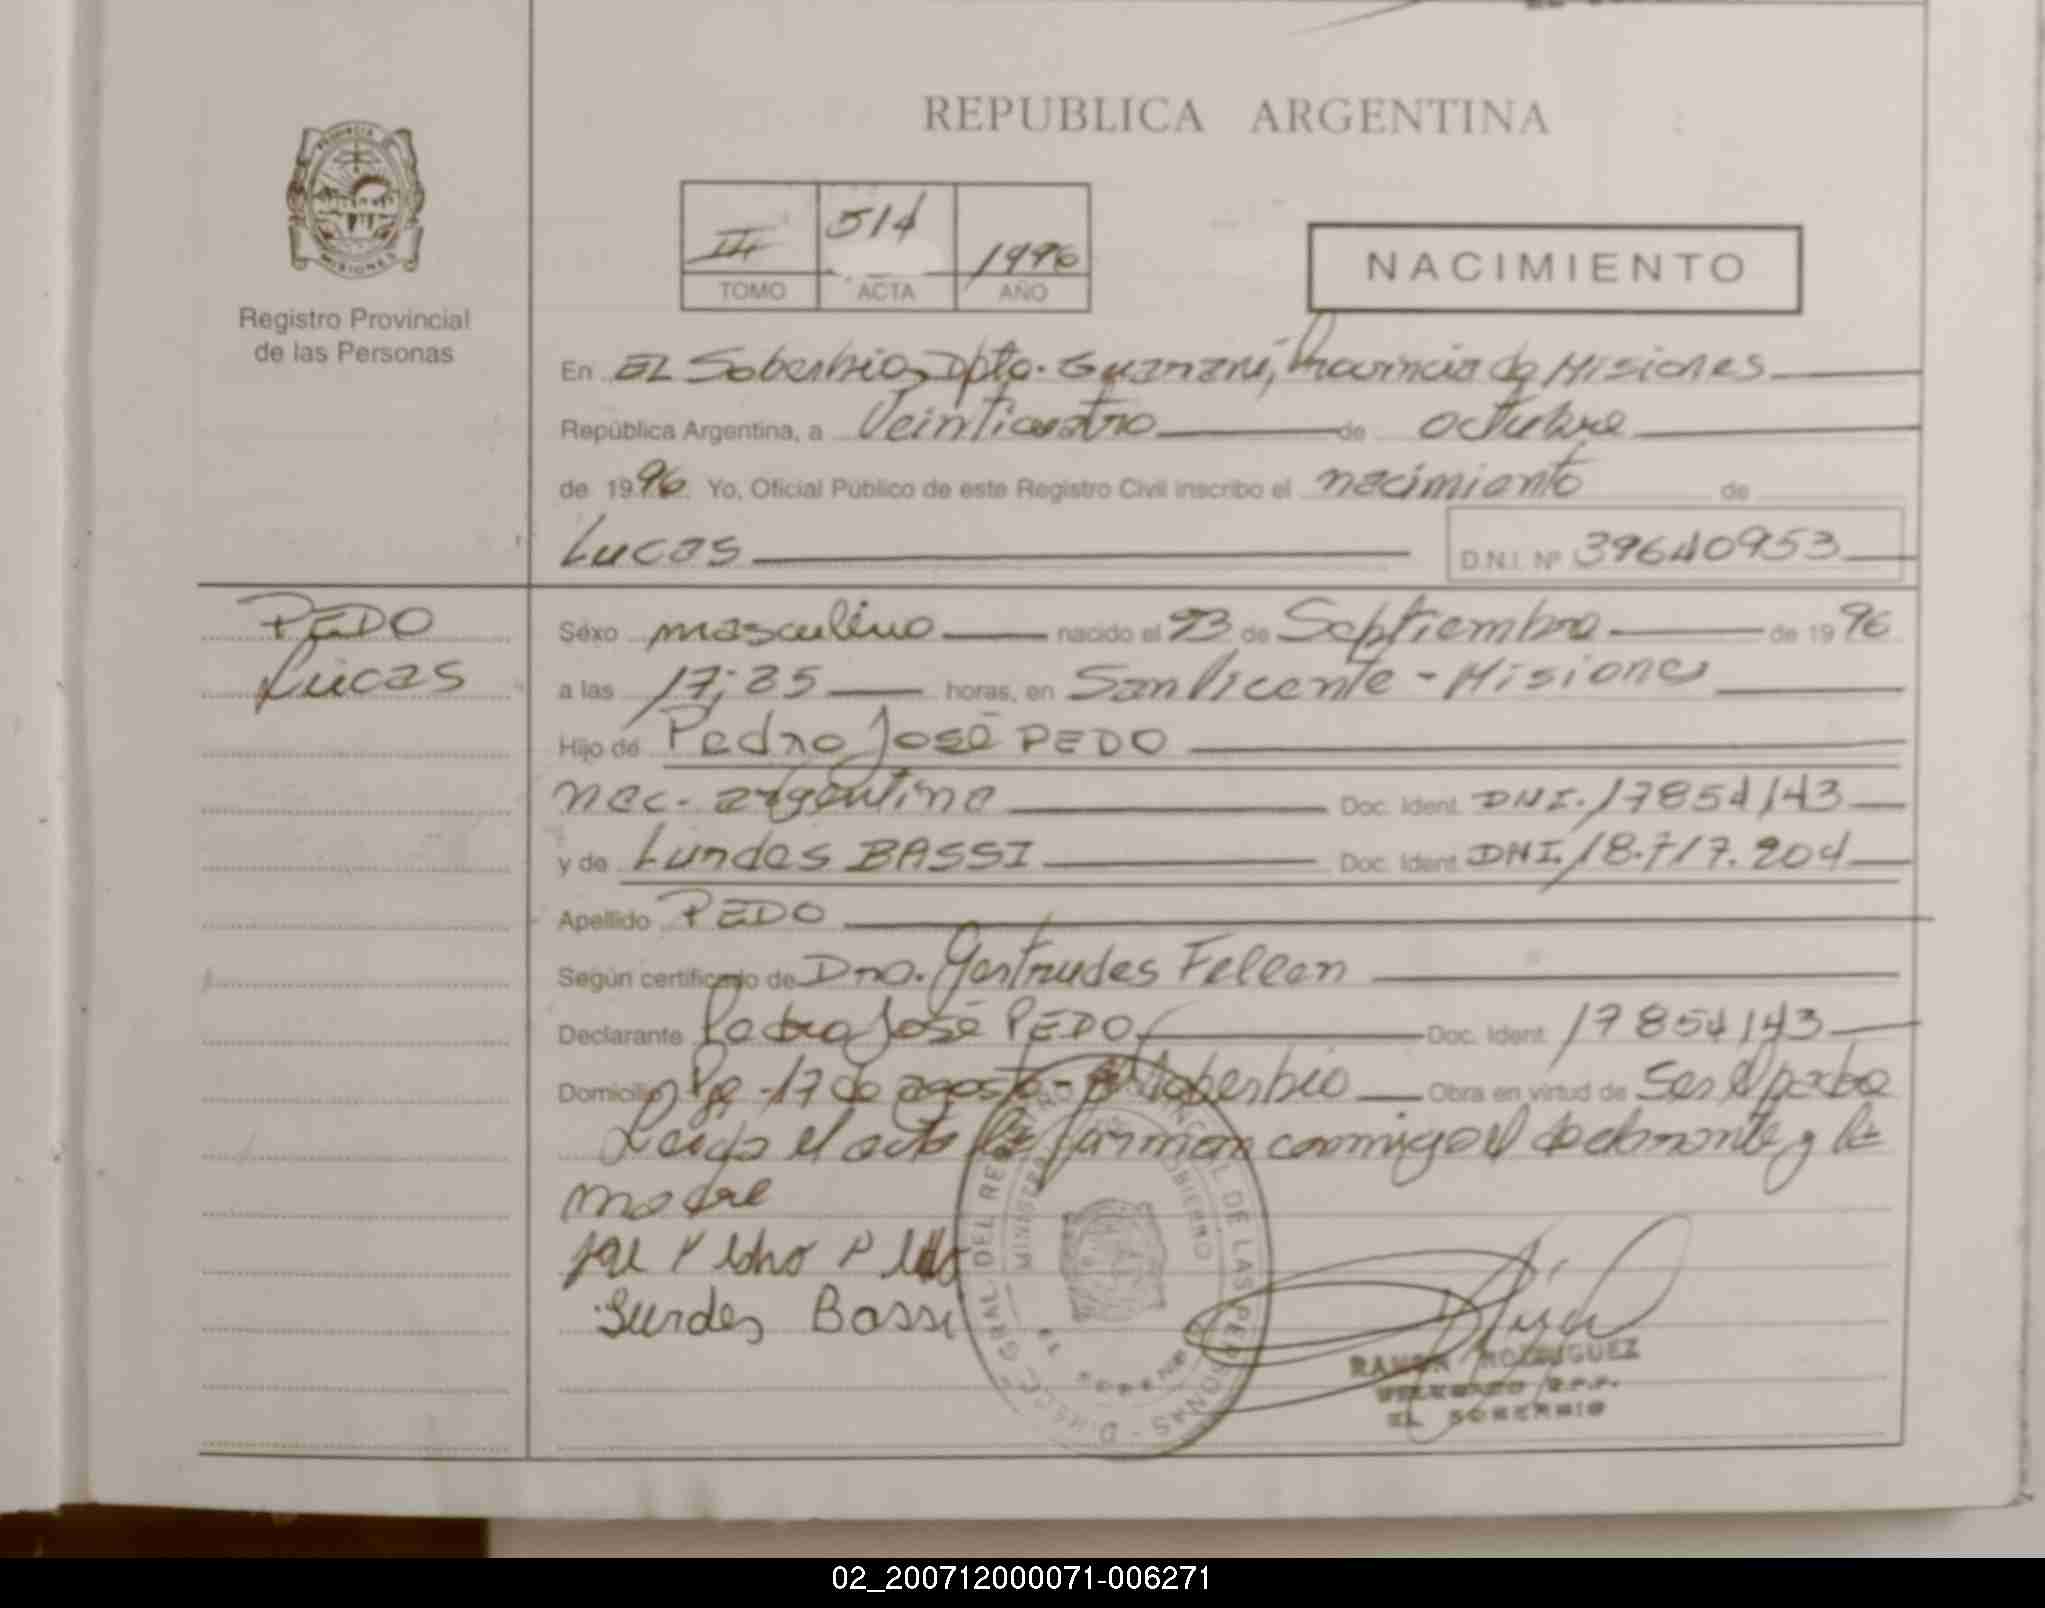 REPUBLICA ARGENTINA
PROVINCIA
MISIONES
Registro Provincial
de las Personas
III 514 1996
TOMO ACTA AÑO
NACIMIENTO
En EL Soberbio, Dpto. Guaraní, Provincia de Misiones
República Argentina, a Veinticuatro de octubre
de 1996 Yo, Oficial Público de este Registro Civil inscribo el nacimiento de
Lucas D.N.I. Nº 39640953
PEDO
Lucas
Sexo masculino nacido el 23 de Septiembre de 1996
a las 17;35 horas, en San Vicente - Misiones
Hijo de Pedro José PEDO
nac. argentina Doc. Ident. DNI. 17854143
y de Lurdes BASSI Doc. Ident. DNI. 18.717.204
Apellido PEDO
Según certificado de Dra. Gertrudes Fellen
Declarante Pedro José PEDO Doc. Ident. 17854143
Domicilio Pje - 17 de agosto - Soberbio Obra en virtud de Ser el padre
Leida el acta la firman conmigo el declarante y la
madre
Lurdes Bassi
DIRECC. GRAL. DEL REGISTRO PROVINCIAL DE LAS PERSONAS
MINISTERIO GOBIERNO
EL SOBERBIO
RAMON RODRIGUEZ
DELEGADO R.P.P.
EL SOBERBIO
02_200712000071-006271